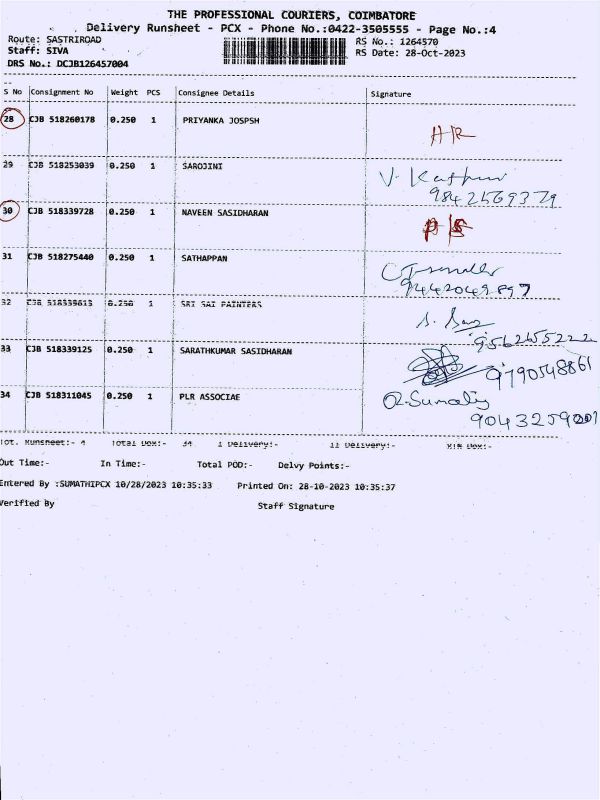 THE PROFESSIONAL COURIERS, COIMBATORE
Delivery Runsheet - PCX - Phone No.:0422-3505555 - Page No.:4
Route: SASTRIROAD RS No.: 1264570
Staff: SIVA RS Date: 28-Oct-2023
DRS No.: DCJB126457004
S No Consignment No Weight PCS Consignee Details Signature
28 CJB 518260178 0.250 1 PRIYANKA JOSPSH
HR
29 CJB 518253039 0.250 1 SAROJINI
V.
9842569379
30 CJB 518339728 0.250 1 NAVEEN SASIDHARAN
31 CJB 518275440 0.250 1 SATHAPPAN
9442049897
32 CJB 518339613 0.250 1 SRI SAI PAINTERS
9562655222
33 CJB 518339125 0.250 1 SARATHKUMAR SASIDHARAN
9790548861
34 CJB 518311045 0.250 1 PLR ASSOCIAE
R. Sumathy
9043259201
Tot. Runsheet:- 4 Total Dox:- 34 I Delivery:- II Delivery:- Nin Dox:-
Out Time:- In Time:- Total POD:- Delvy Points:-
Entered By :SUMATHIPCX 10/28/2023 10:35:33 Printed On: 28-10-2023 10:35:37
Verified By Staff Signature